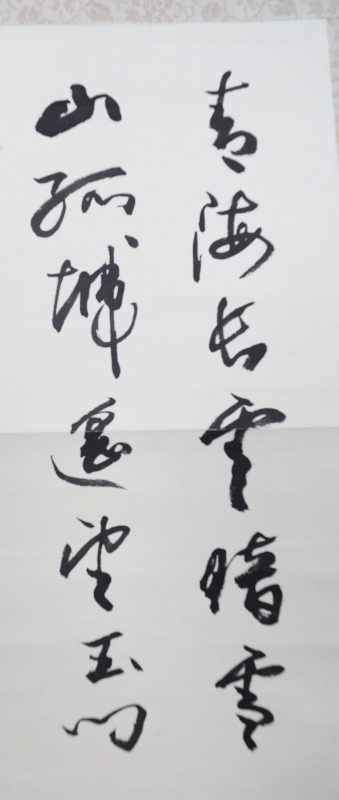 青海长云暗雪
山孤城遥望玉门